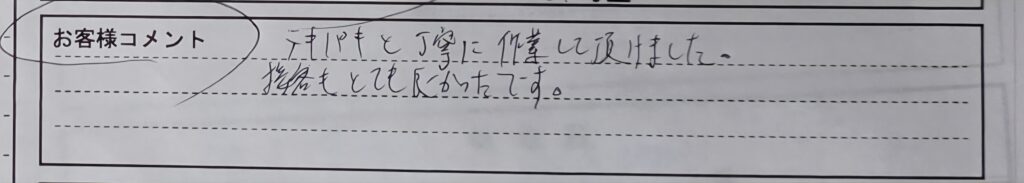 お客様コメント
テキパキと丁寧に作業して頂けました。
接客もとても良かったです。